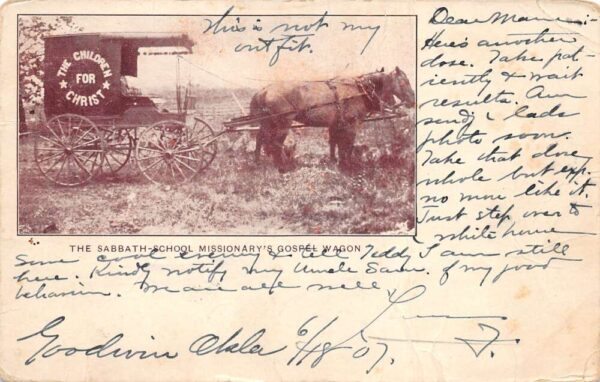 This is not my
outfit.
THE CHILDREN
FOR
CHRIST
THE SABBATH-SCHOOL MISSIONARY'S GOSPEL WAGON
Dear Mame:-
Here's another
dose. Take pat-
iently & wait
results. Am
sending lads
photo soon.
Take that dose
whole but exp.
no more like it.
Just step over to
white house
Some cool evening & tell Teddy I am still
here. Kindly notify my Uncle Sam. of my good
behavior. We are all well
Goodwin Okla 6/18 07.